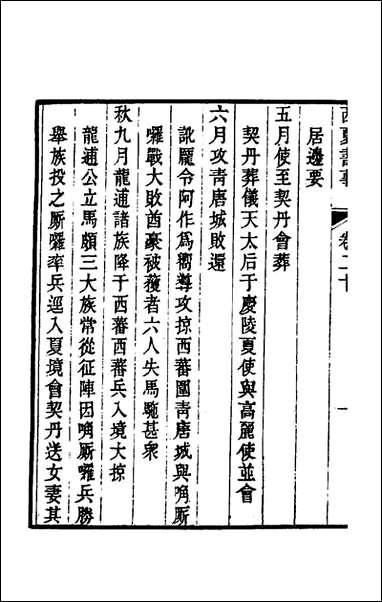 西夏書事
卷二十
一
居邊要
五月使至契丹會葬
契丹葬儀天太后于慶陵夏使與高麗使並會
六月攻青唐城敗還
訛龎令阿作為嚮導攻掠西蕃圍青唐城與唃厮
囉戰大敗酋豪被獲者六人失馬駞甚衆
秋九月龍逋諸族降于西蕃西蕃兵入境大掠
龍逋公立馬頗三大族常從征陣因唃厮囉兵勝
舉族投之厮囉率兵逕入夏境會契丹送女妻其